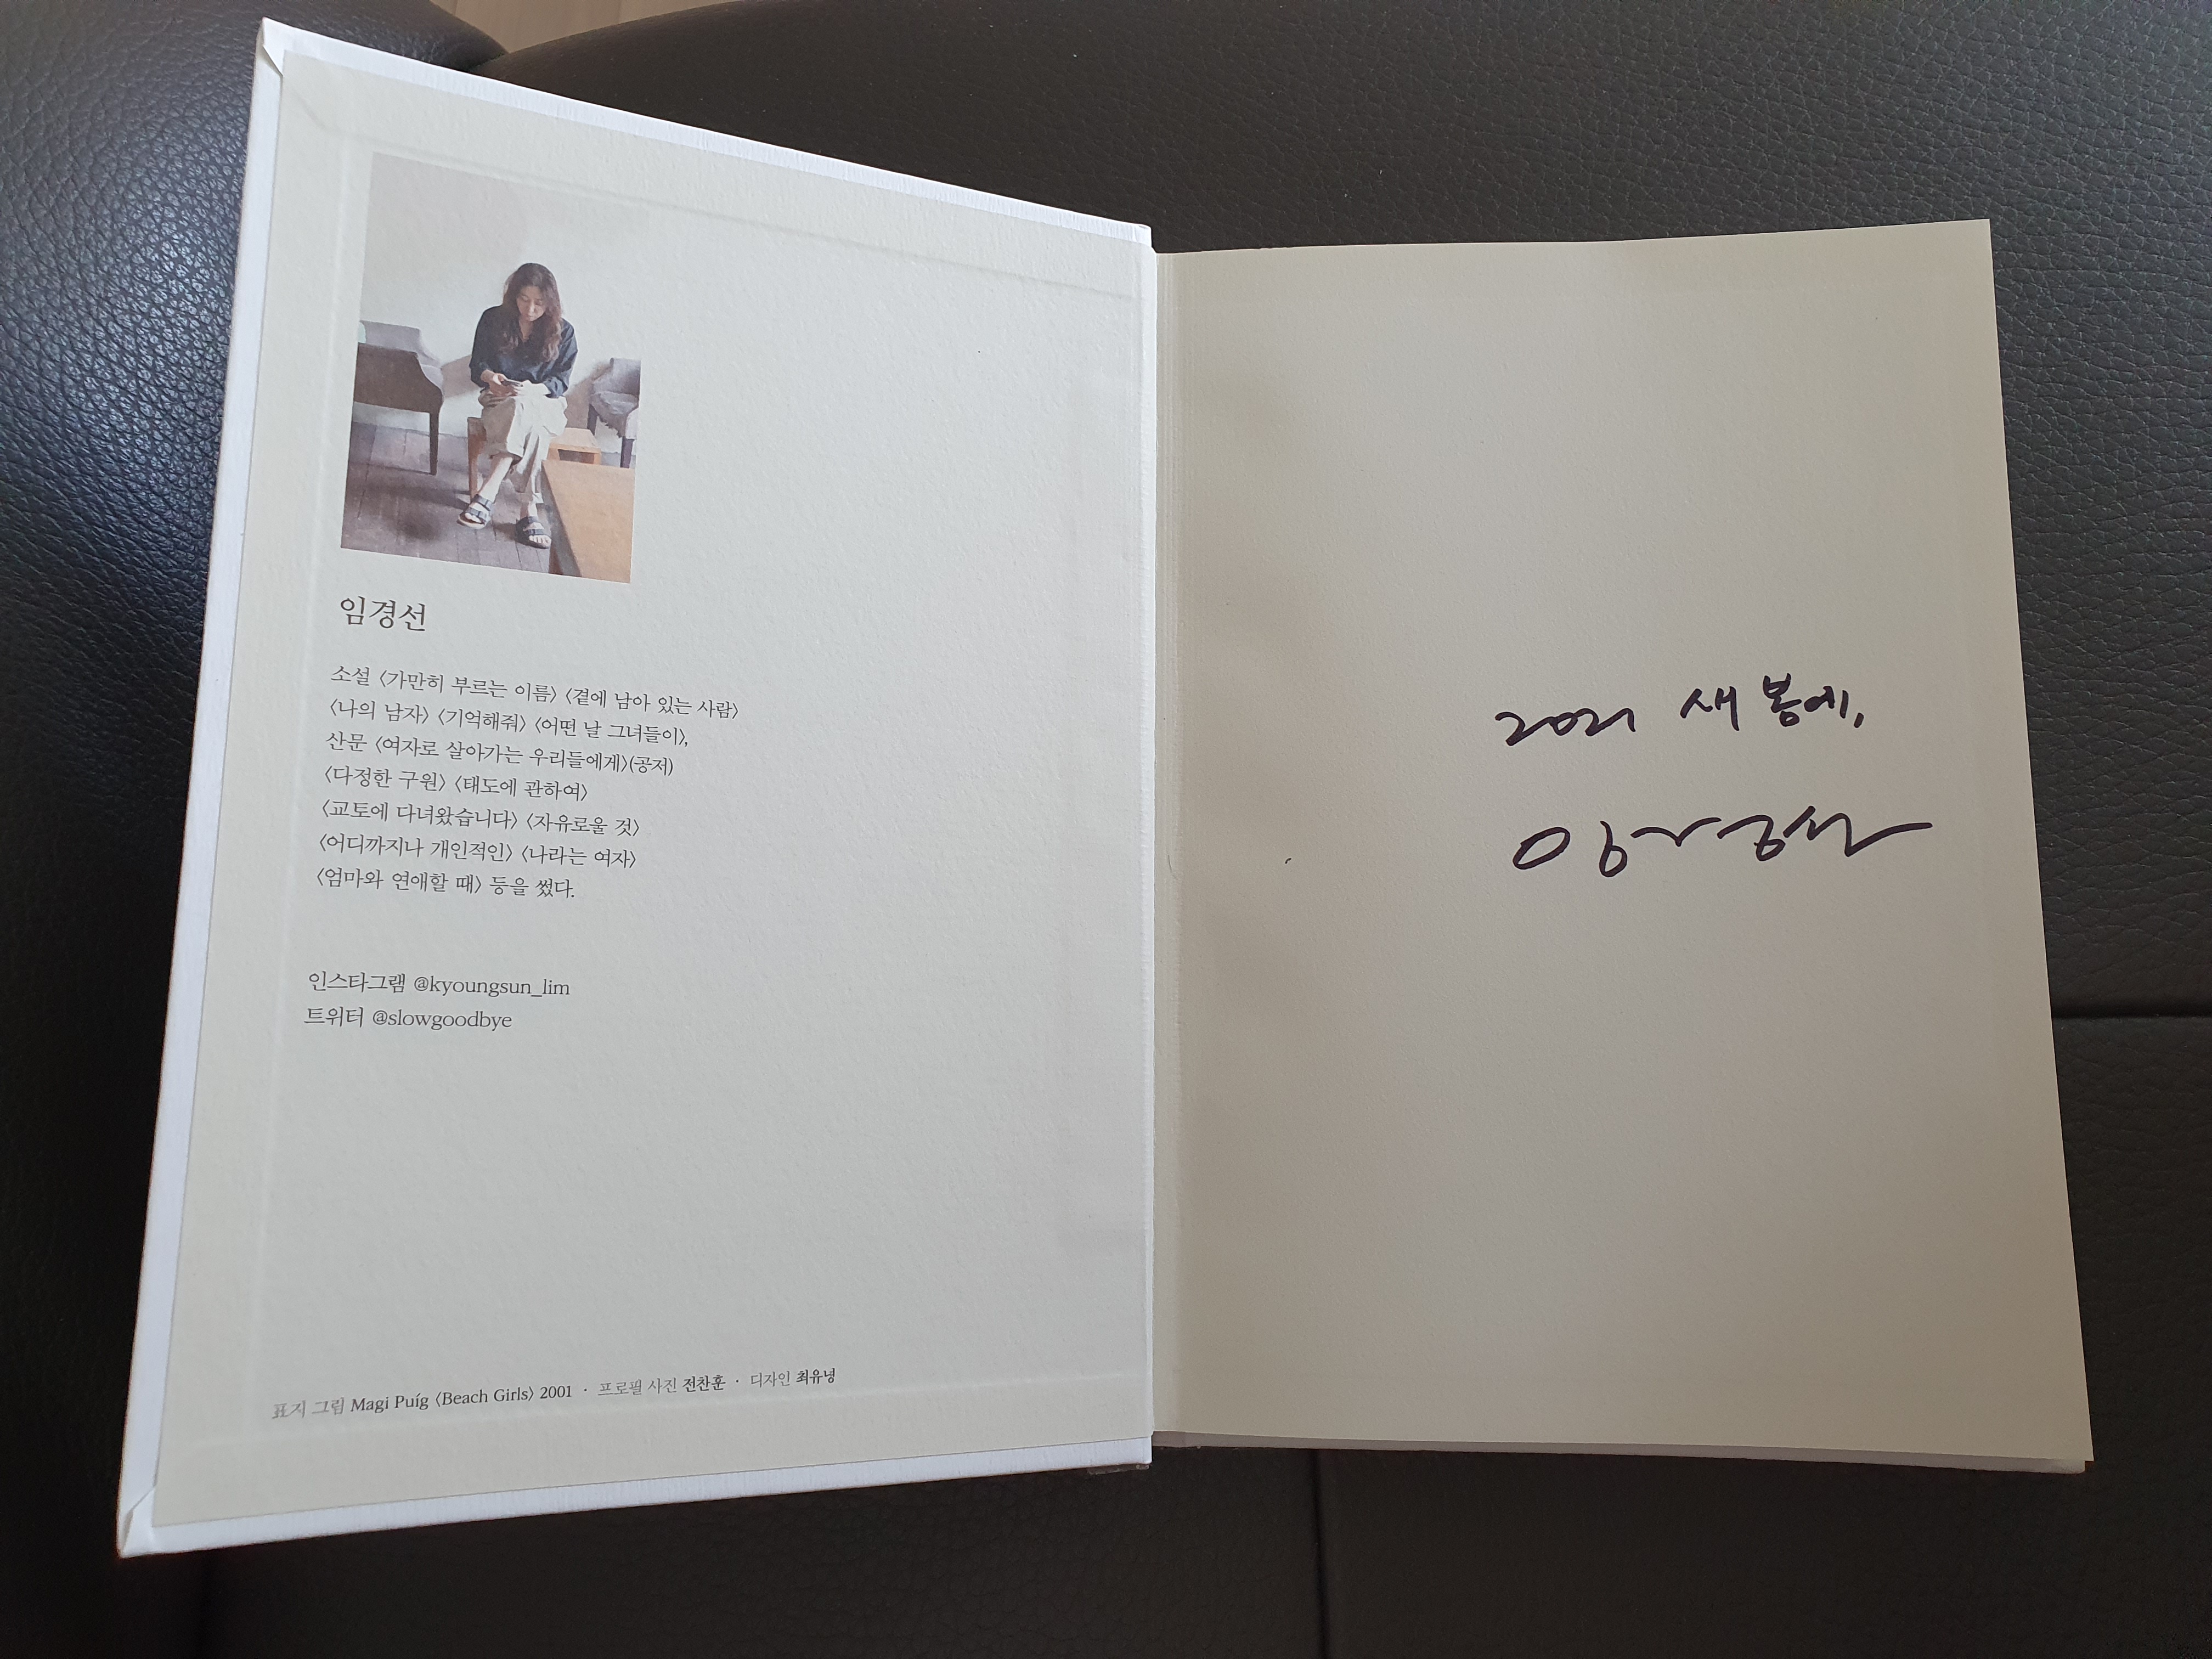 임경선
소설 〈가만히 부르는 이름〉 〈곁에 남아 있는 사람〉
〈나의 남자〉 〈기억해줘〉 〈어떤 날 그녀들이〉,
산문 〈여자로 살아가는 우리들에게〉(공저)
〈다정한 구원〉 〈태도에 관하여〉
〈교토에 다녀왔습니다〉 〈자유로울 것〉
〈어디까지나 개인적인〉 〈나라는 여자〉
〈엄마와 연애할 때〉 등을 썼다.
인스타그램 @kyoungsun_lim
트위터 @slowgoodbye
표지 그림 Magi Puíg 〈Beach Girls〉 2001 · 프로필 사진 전찬훈 · 디자인 최유녕
2021 새봄에,
임경선